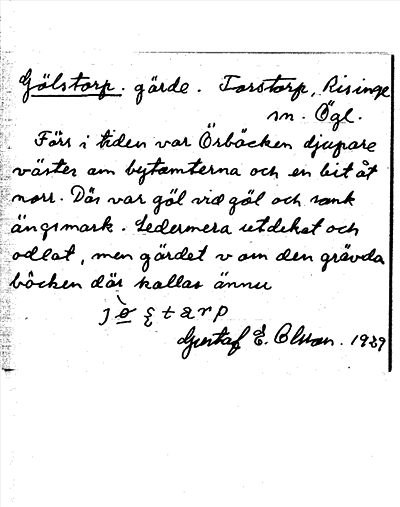 Gölstorp. gärde. Torstorp, Risinge
sn. Ögl.
Förs i tiden var Örbäcken djupare
väster om bytomterna och en bit åt
norr. Där var göl vid göl och sank
ängsmark. Sedermera utdikat och
odlat, men gärdet v om den grävda
bäcken där kallas ännu
Gustaf E. Olsson. 1929